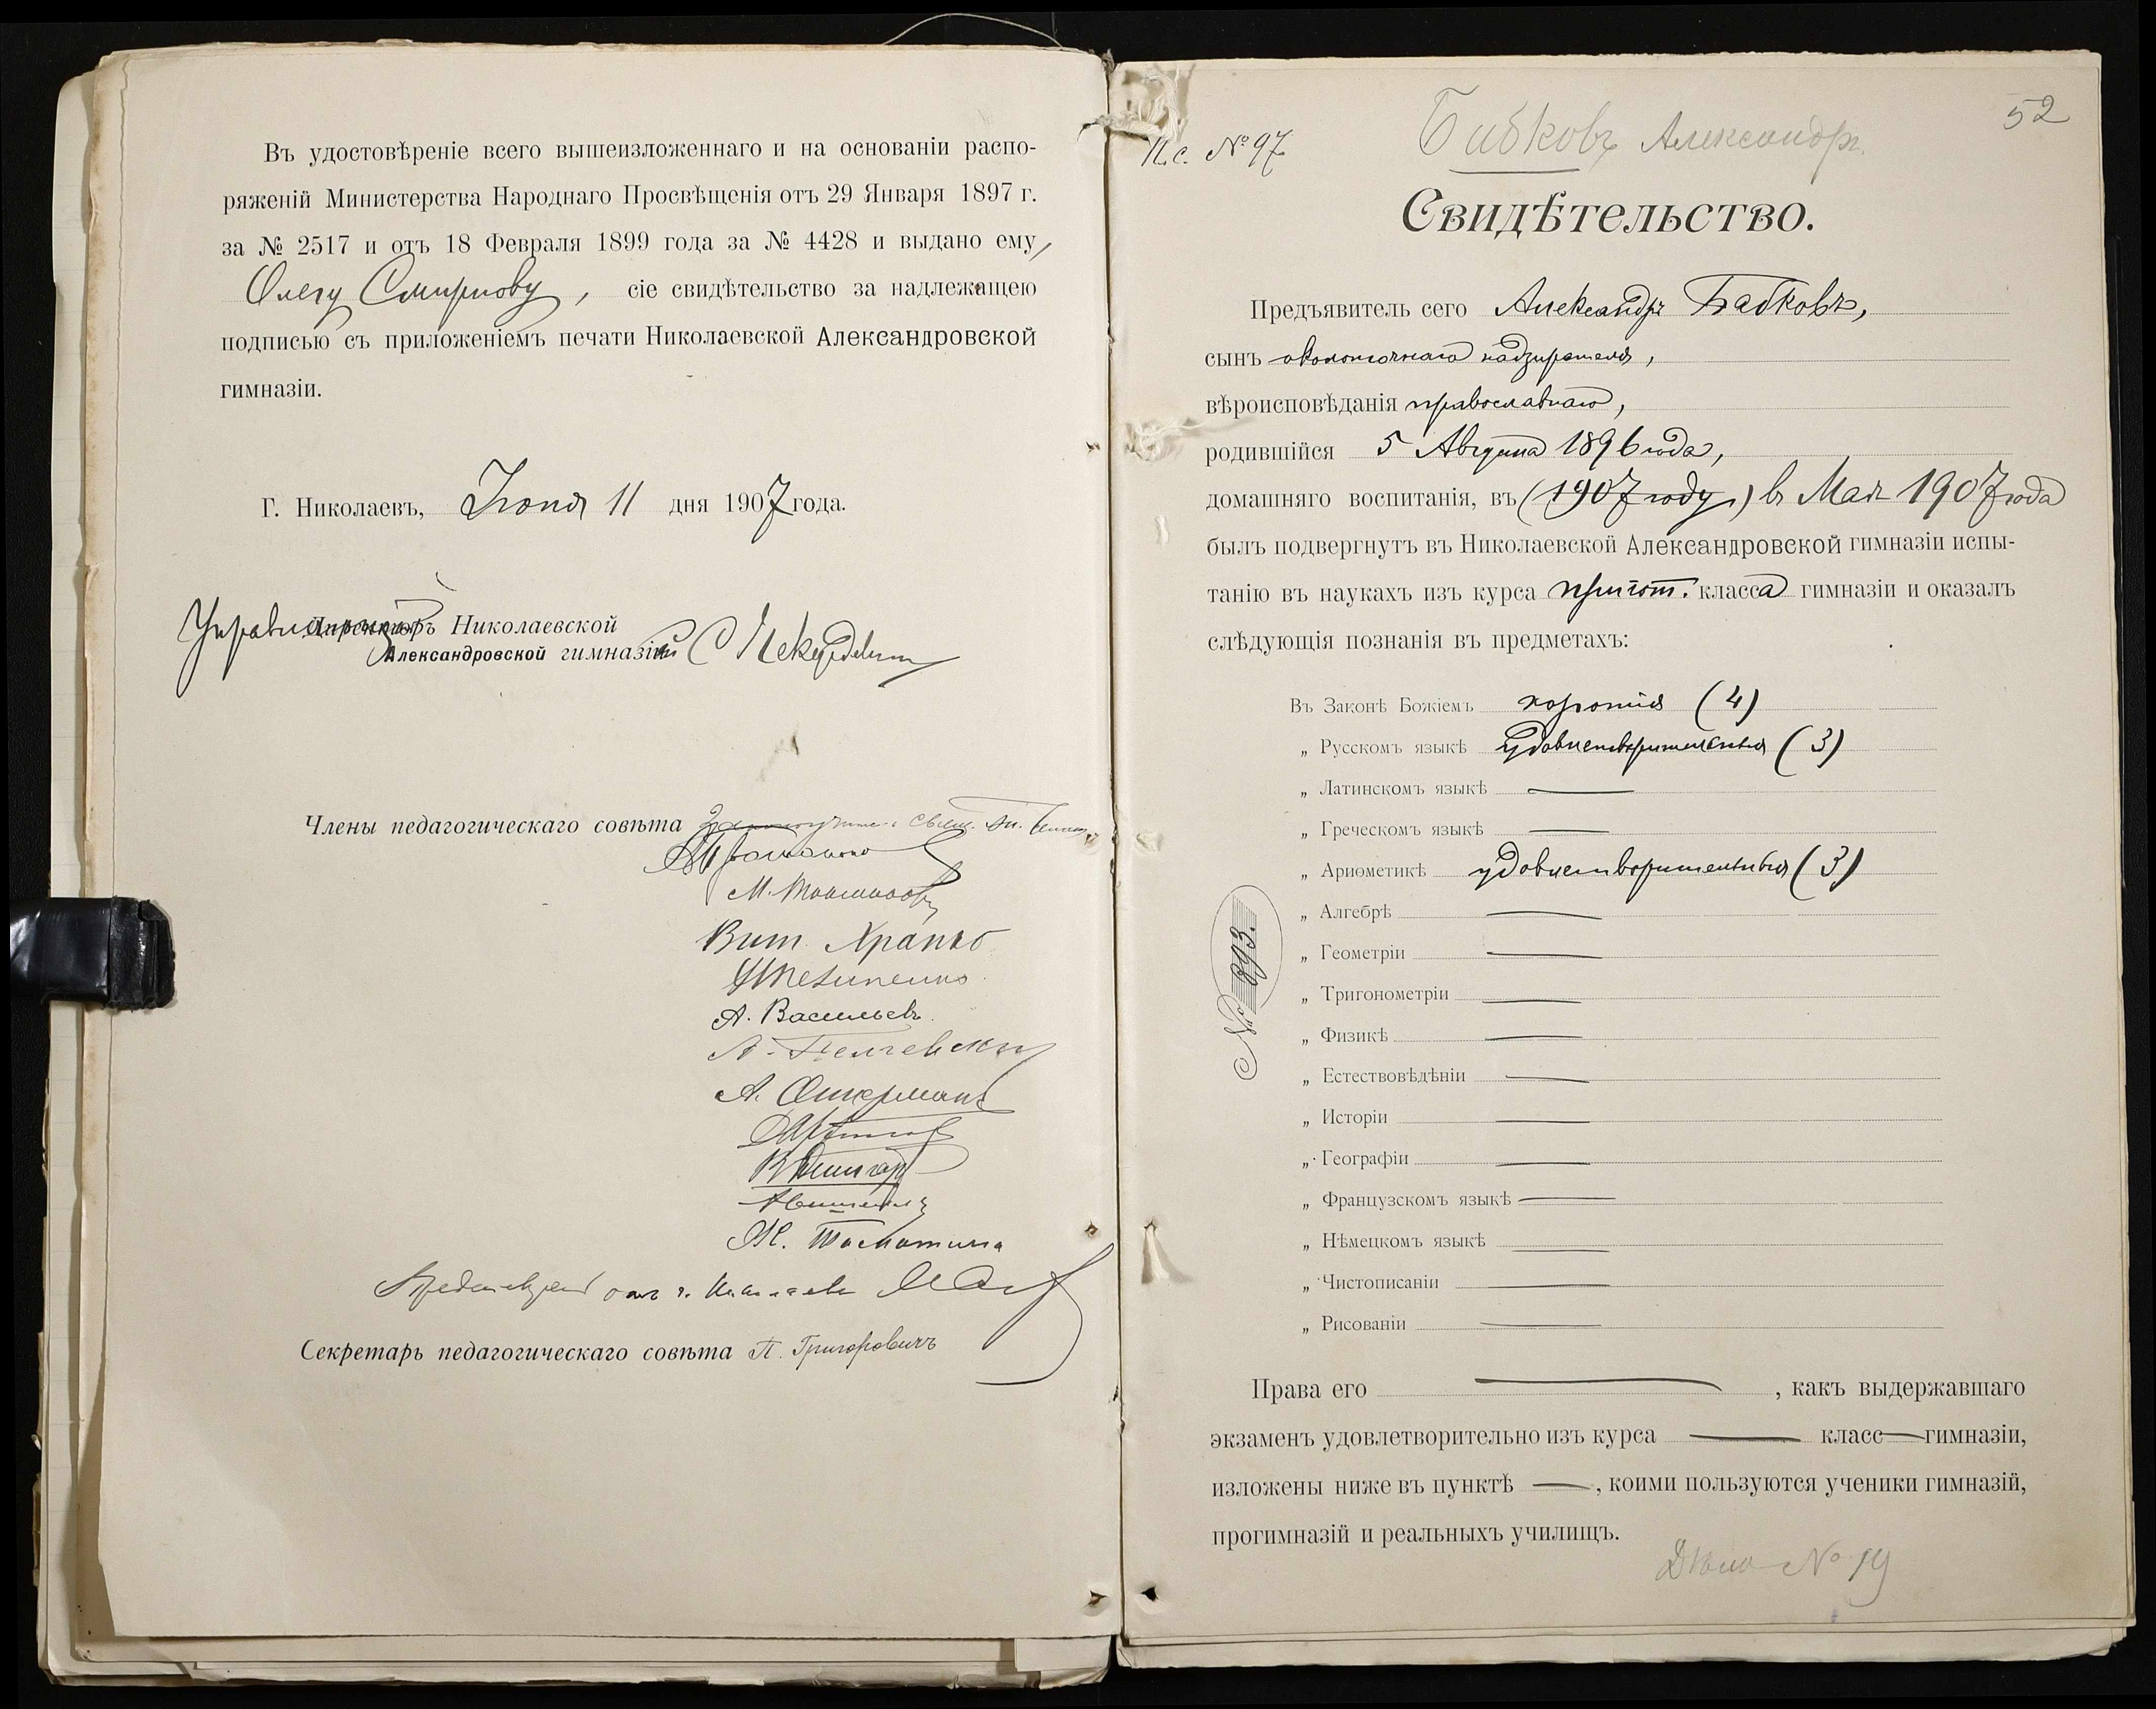 Въ удостовѣреніе всего вышеизложеннаго и на основаніи распо-
ряженій Министерства Народнаго Просвѣщенія отъ 29 Января 1897 г.
за № 2517 и отъ 18 Февраля 1899 года за № 4428 и выдано ему,
Олегу Смирнову, сіе свидѣтельство за надлежащею
подписью съ приложеніемъ печати Николаевской Александровской
гимназіи.
Г. Николаевъ, Іюня 11 дня 1907 года.
Директоръ Николаевской
Александровской гимназіи
Члены педагогическаго совѣта
Вит. Храпко
А. Васильевъ
Секретарь педагогическаго совѣта П. Григоровичъ
52
П.с. № 97
Бабковъ Александръ.
Свидѣтельство.
Предъявитель сего Александръ Бабковъ,
сынъ околоточнаго надзирателя,
вѣроисповѣданія православнаго,
родившійся 5 Августа 1896 года,
домашняго воспитанія, въ (1907 году) въ Маѣ 1907 года
былъ подвергнутъ въ Николаевской Александровской гимназіи испы-
танію въ наукахъ изъ курса пригот. класса гимназіи и оказалъ
слѣдующія познанія въ предметахъ:
Въ Законѣ Божіемъ хорошія (4)
„ Русскомъ языкѣ удовлетворительныя (3)
„ Латинскомъ языкѣ —
„ Греческомъ языкѣ —
„ Ариѳметикѣ удовлетворительныя (3)
„ Алгебрѣ —
„ Геометріи —
„ Тригонометріи —
„ Физикѣ —
„ Естествовѣдѣніи —
„ Исторіи —
„ Географіи —
„ Французскомъ языкѣ —
„ Нѣмецкомъ языкѣ —
„ Чистописаніи —
„ Рисованіи —
№ 893.
Права его — , какъ выдержавшаго
экзаменъ удовлетворительно изъ курса — класс— гимназіи,
изложены ниже въ пунктѣ — , коими пользуются ученики гимназій,
прогимназій и реальныхъ училищъ.
Дѣло № 19